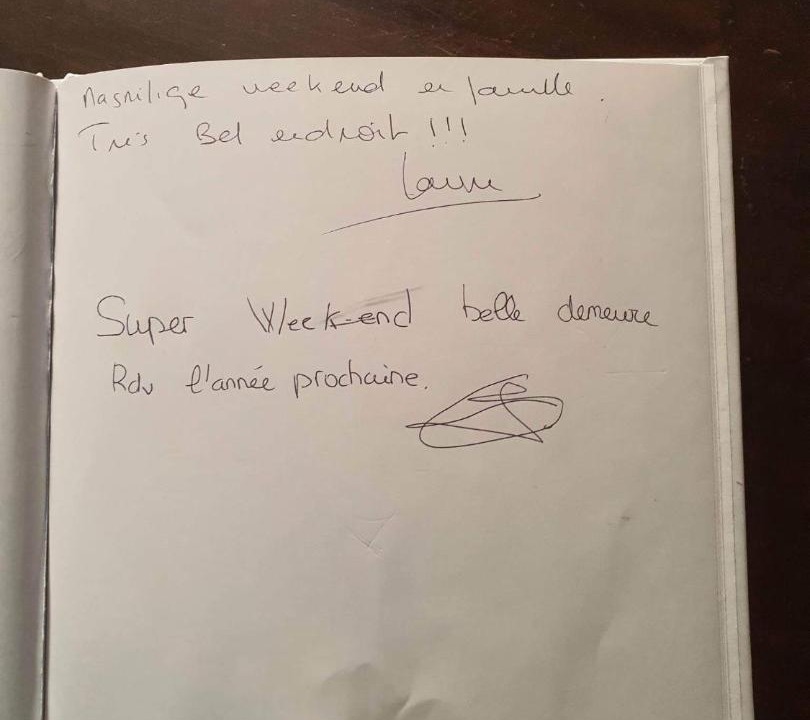 Magnifique weekend en famille.
Très Bel endroit !!!
Super Week-end belle demeure
Rdv l'année prochaine.